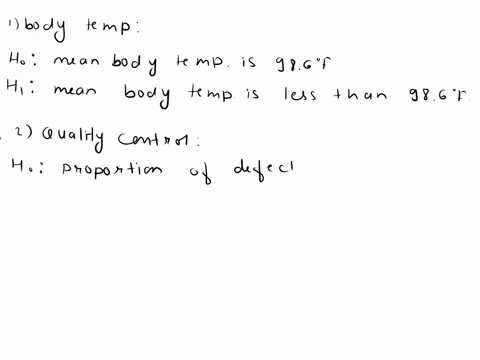 1) body temp:
H₀: mean body temp. is 98.6°F
H₁: mean body temp is less than 98.6°F.
2) Quality control:
H₀: proportion of defect